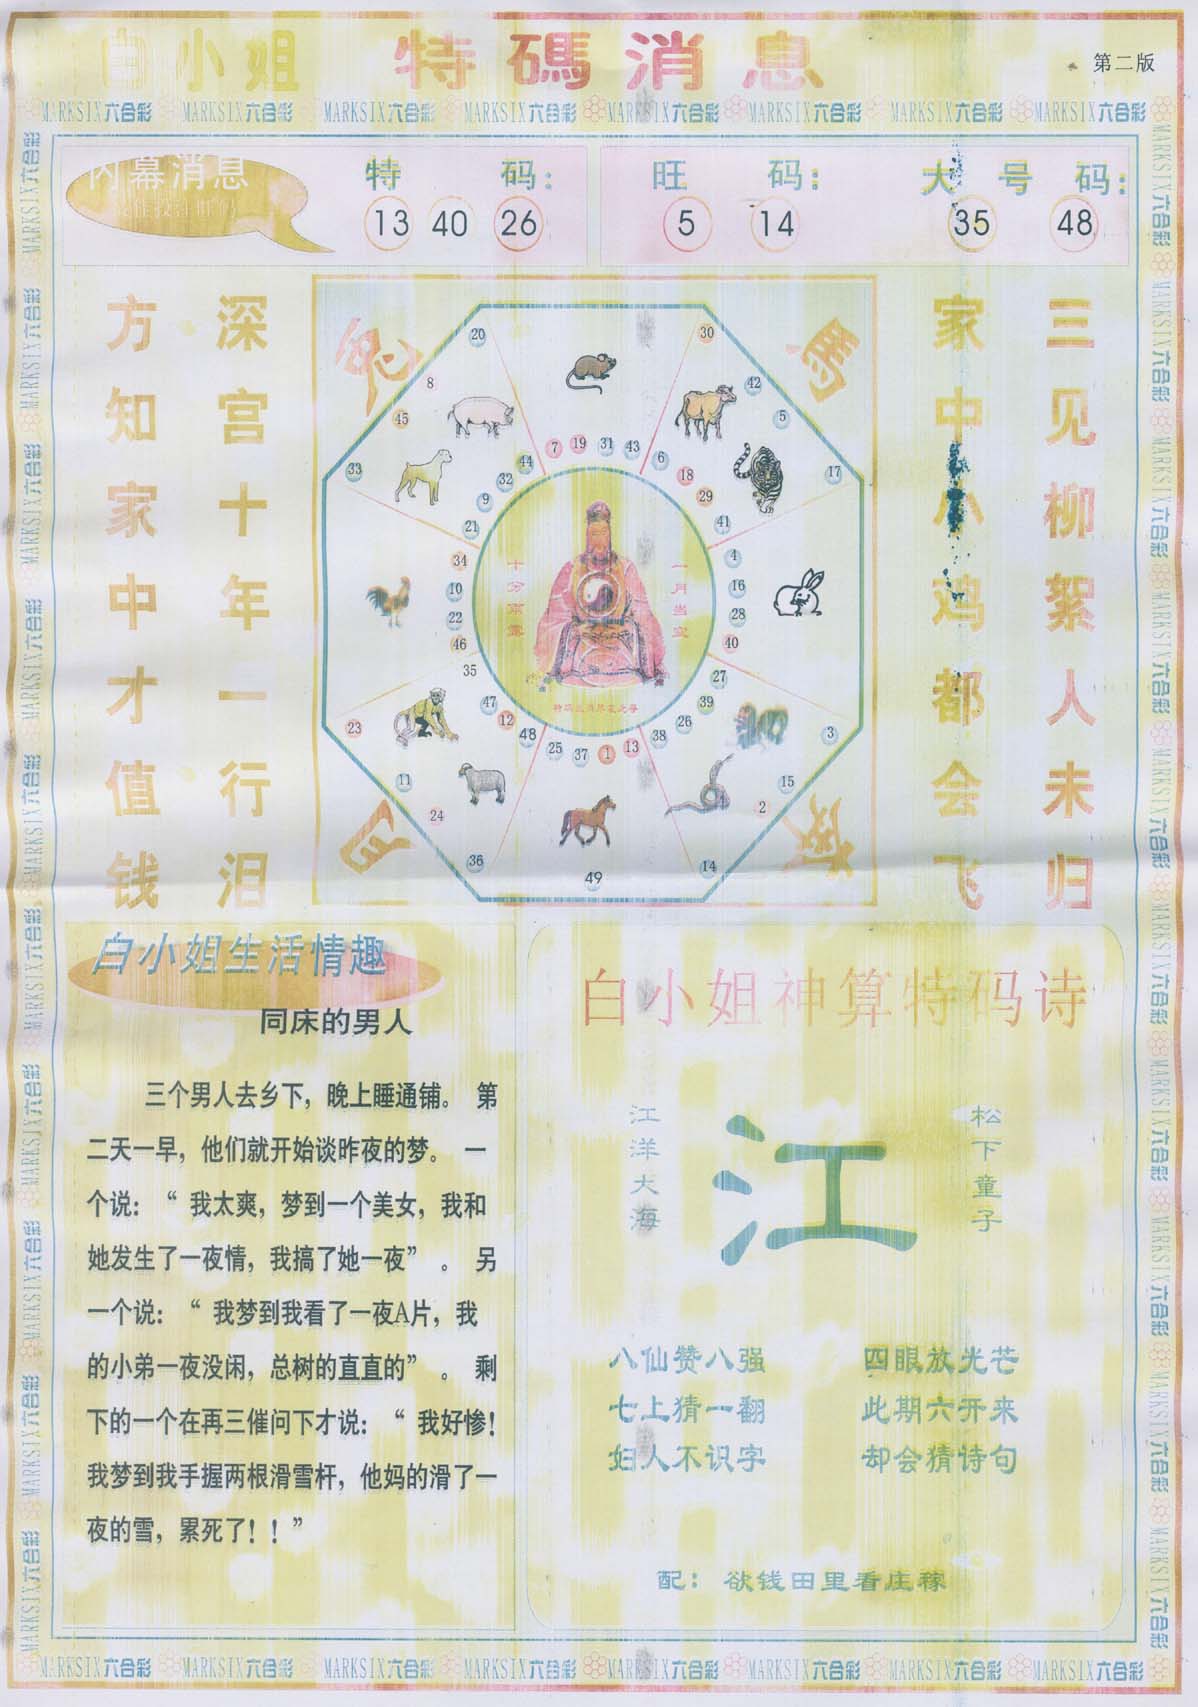 白小姐 特碼消息
第二版
MARKSIX六合彩 MARKSIX六合彩 MARKSIX六合彩 MARKSIX六合彩 MARKSIX六合彩 MARKSIX六合彩 MARKSIX六合彩 MARKSIX六合彩
内幕消息
特 码：
13 40 26
旺 码：
5 14
大 号 码：
35 48
三见柳絮人未归
家中小鸡都会飞
深宫十年一行泪
方知家中才值钱
馬
20 30
8 42
45 5
33 17
7 19 31 43
44 6
32 18
9 29
21 41
34 4
10 16
22 28
46 40
35 27
47 39
12 26
48 38
25 37 1 13
23 3
11 15
24 2
36 14
49
一月当空
十分雨露
白小姐生活情趣
同床的男人
三个男人去乡下，晚上睡通铺。 第
二天一早，他们就开始谈昨夜的梦。 一
个说：“ 我太爽，梦到一个美女，我和
她发生了一夜情，我搞了她一夜” 。 另
一个说：“ 我梦到我看了一夜A片，我
的小弟一夜没闲，总树的直直的” 。 剩
下的一个在再三催问下才说：“ 我好惨！
我梦到我手握两根滑雪杆，他妈的滑了一
夜的雪，累死了！！”
白小姐神算特码诗
松下童子
江
江洋大海
八仙赞八强 四眼放光芒
七上猜一翻 此期六开来
妇人不识字 却会猜诗句
配：欲钱田里看庄稼
MARKSIX六合彩 MARKSIX六合彩 MARKSIX六合彩 MARKSIX六合彩 MARKSIX六合彩 MARKSIX六合彩 MARKSIX六合彩 MARKSIX六合彩